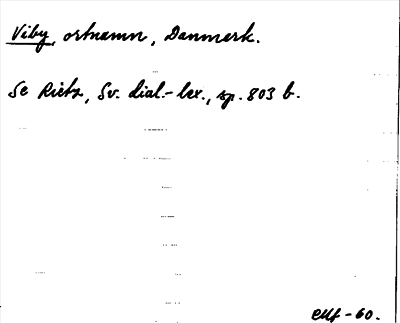 Viby, ortnamn, Danmark.
Se Rietz, Sv. dial.-lex., sp. 803 b.
-60.